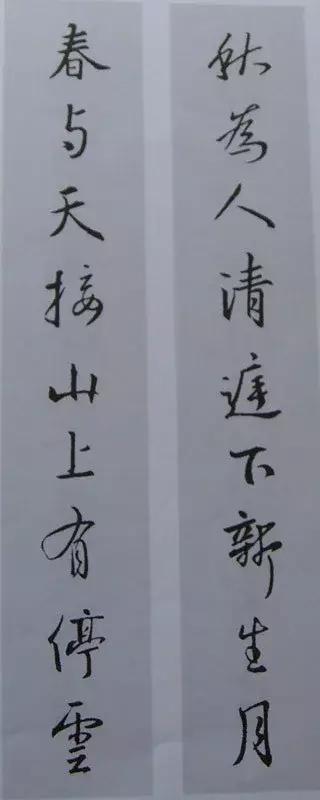 秋為人清下新生月
春与天接山上有停雲